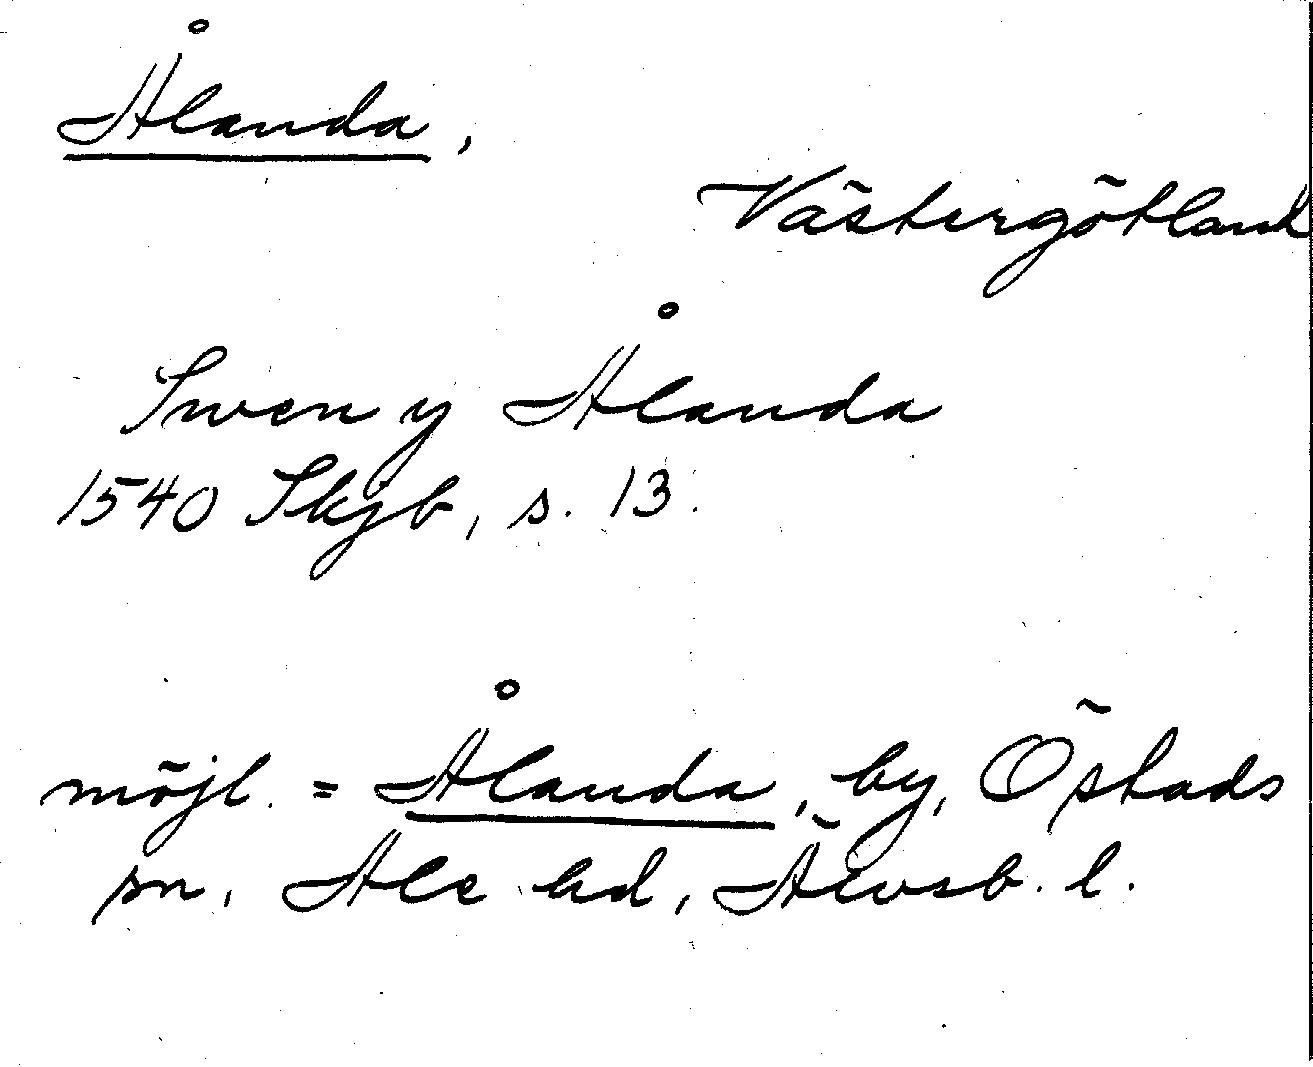 Ålanda,
Västergötland
Swen y Ålanda
1540 Skjb, s. 13.
möjl. = Ålanda, by, Östads
sn, Ale hd, Älvsb. l.